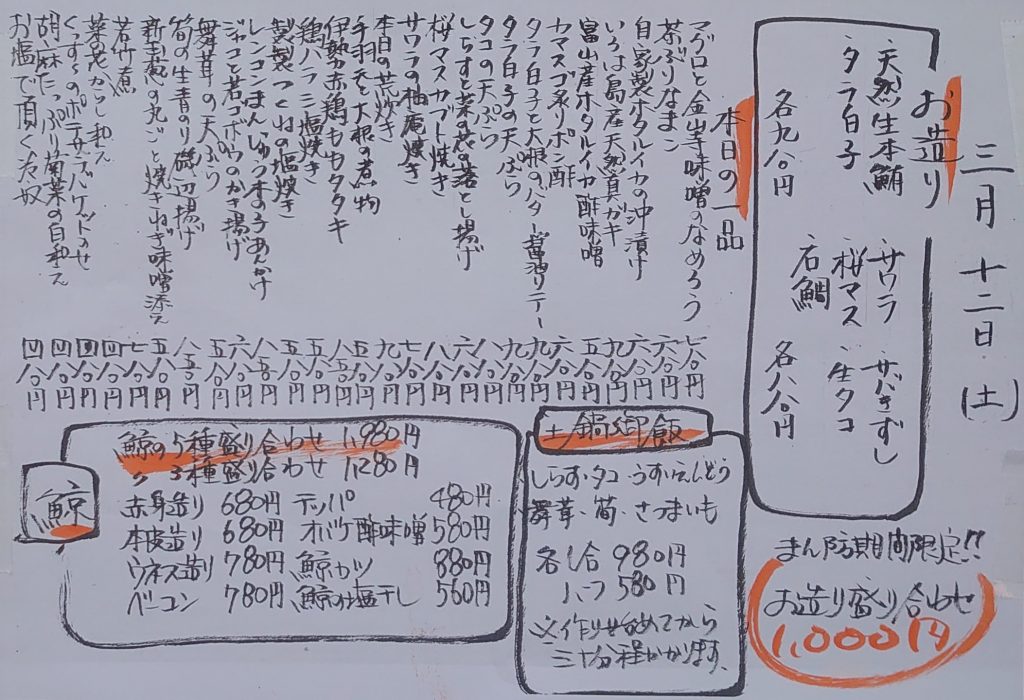 三月十二日(土)
お造り
天然生本鮪
タラ白子
各九八〇円
サワラ サバきずし
桜マス 生タコ
石鯛
各八八〇円
本日の一品
マグロと金山寺味噌のなめろう 七八〇円
茶ぶりなまこ 六八〇円
自家製ホタルイカの沖漬け 六八〇円
いろは島産天然真ガキ 九八〇円
富山産ホタルイカ酢味噌 五八〇円
カマスゴ炙りポン酢 六八〇円
タラ白子と大根のバター醤油ソテー 九八〇円
タラ白子の天ぷら 九八〇円
タコの天ぷら 八八〇円
しらすと菜の花の落とし揚げ 六八〇円
桜マスカブト焼き 八八〇円
サワラの柚庵焼き 七八〇円
本日の荒炊き 九八〇円
手羽元と大根の煮物 五八〇円
伊勢赤鶏ももタタキ 八五〇円
鶏ハラミ塩焼き 五八〇円
つくねの塩焼き 五八〇円
レンコンまんじゅう木の子あんかけ 八五〇円
ジャコと若ゴボウのかき揚げ 六八〇円
舞茸の天ぷら 五八〇円
筍の生青のり磯辺揚げ 八五〇円
新玉葱の丸ごと焼きねぎ味噌添え 五八〇円
若竹煮 七八〇円
菜の花からし和え 四八〇円
ポテサラバケットのせ 四八〇円
胡麻たっぷり菊菜の白和え 四八〇円
お塩で頂く冷奴 四八〇円
まん防期間限定!!
お造り盛り合わせ
1,000円
土鍋御飯
しらす・タコ・うすいえんどう
舞茸・筍・さつまいも
各1合 980円
ハーフ 580円
※作り始めてから
三十分程かかります。
鯨
鯨の5種盛り合わせ 1,980円
〃 3種盛り合わせ 1,280円
赤身造り 680円 テッパ 480円
本皮造り 680円 オバケ酢味噌 580円
ウネス造り 780円 鯨カツ 880円
ベーコン 780円 鯨の塩干し 560円